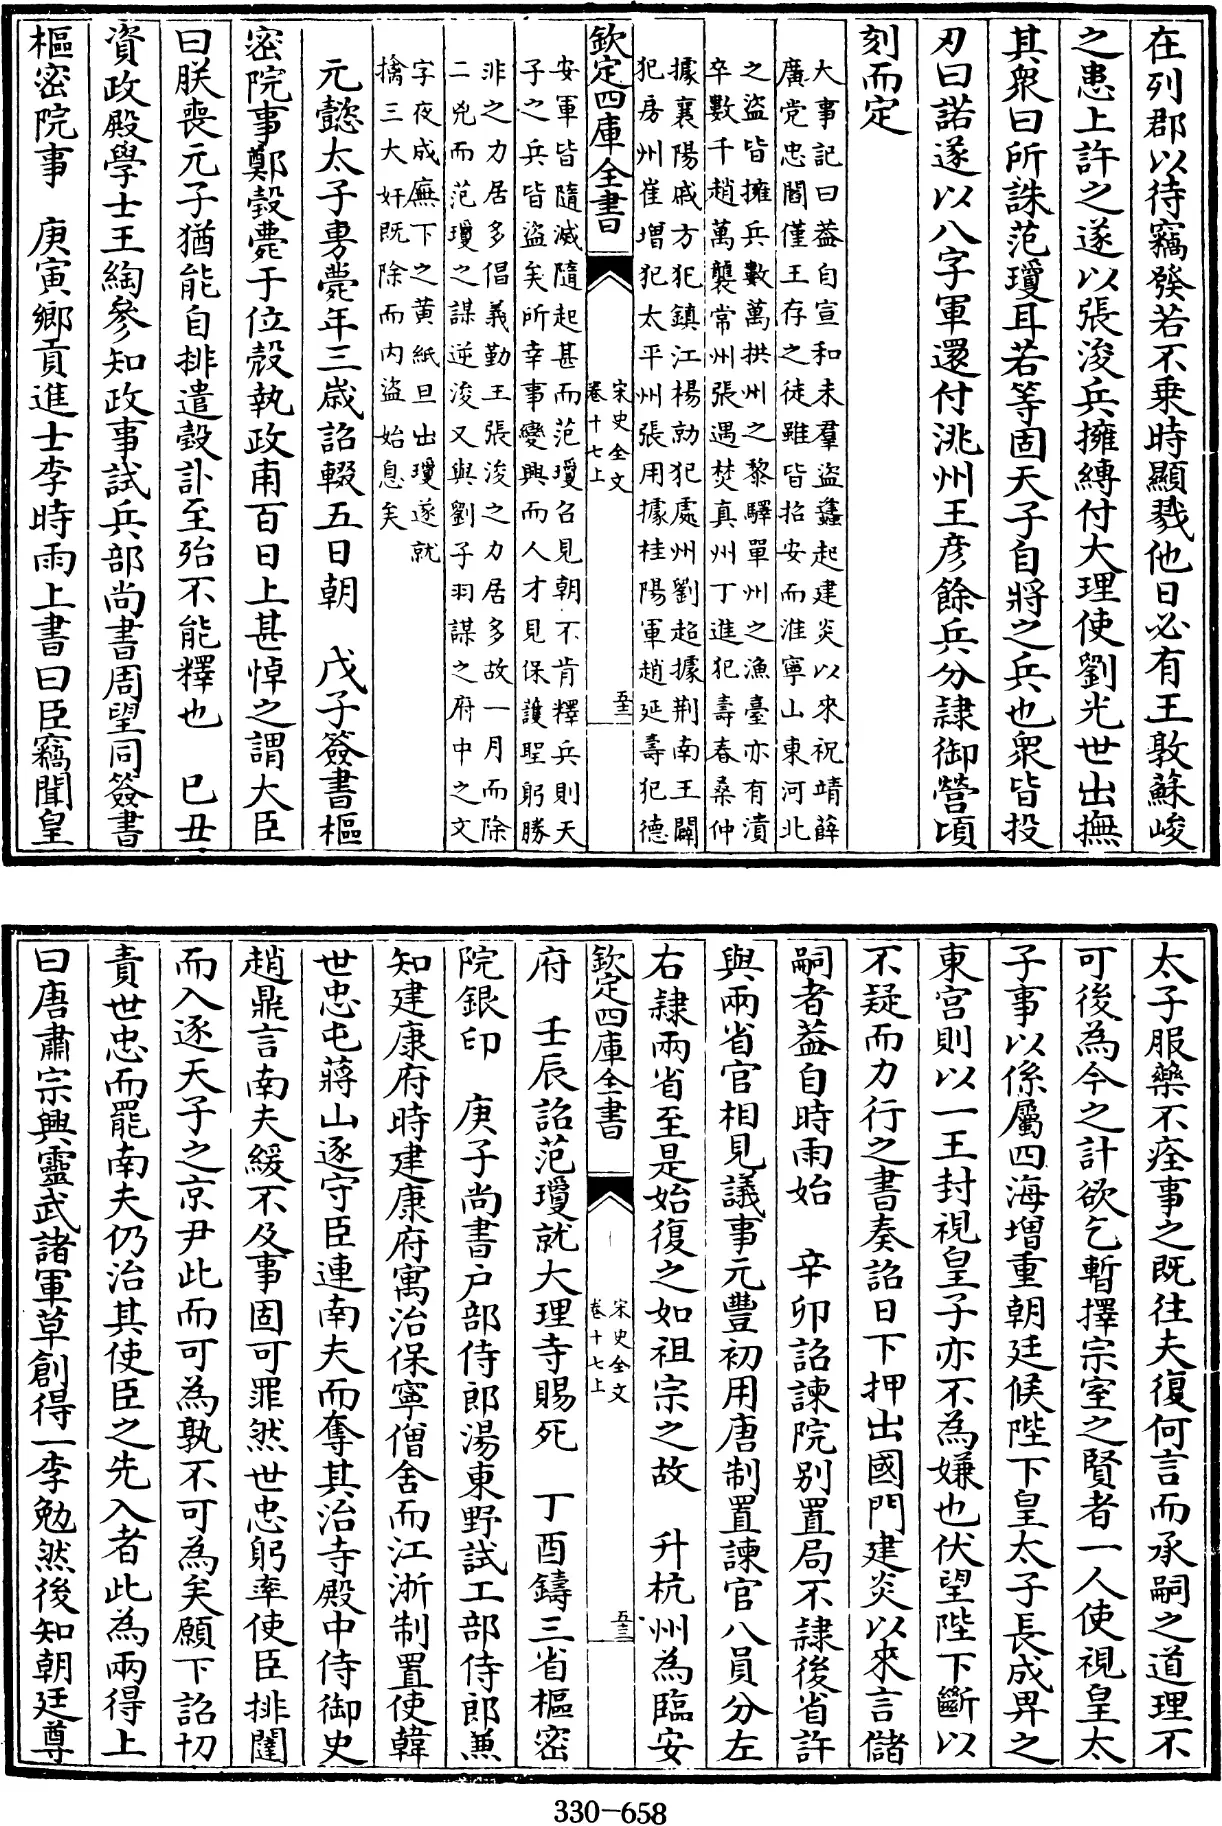 在列郡以待竊發若不乗時顯戮他日必有王敦蘇峻
之患上許之遂以張浚兵擁縛付大理使劉光世出撫
其衆曰所誅范瓊耳若等固天子自將之兵也衆皆投
刃曰諾遂以八字軍還付洮州王彦餘兵分隷御營頃
刻而定
大事記曰葢自宣和未羣盗蠭起建炎以來祝靖薛
廣党忠閻僅王存之徒雖皆招安而淮寧山東河北
之盗皆擁兵數萬拱州之黎驛單州之漁臺亦有潰
卒數千趙萬襲常州張遇焚真州丁進犯壽春桑仲
據襄陽戚方犯鎮江楊勍犯處州劉超據荆南王闢
犯房州崔増犯太平州張用據桂陽軍趙延壽犯德
欽定四庫全書
宋史全文
卷十七上
五十二
安軍皆隨滅隨起甚而范瓊召見朝不肯釋兵則天
子之兵皆盗矣所幸事變興而人才見保䕶聖躬勝
非之力居多倡義勤王張浚之力居多故一月而除
二兇而范瓊之謀逆浚又與劉子羽謀之府中之文
字夜成廡下之黄紙旦出瓊遂就
擒三大奸既除而内盗始息矣
元懿太子旉薨年三歳詔輟五日朝　戊子簽書樞
密院事鄭瑴薨于位瑴執政甫百日上甚悼之謂大臣
曰朕喪元子猶能自排遣瑴訃至殆不能釋也　已丑
資政殿學士王綯參知政事試兵部尚書周望同簽書
樞密院事　庚寅鄉貢進士李時雨上書曰臣竊聞皇
太子服藥不痊事之既往夫復何言而承嗣之道理不
可後為今之計欲乞暫擇宗室之賢者一人使視皇太
子事以係屬四海増重朝廷候陛下皇太子長成畀之
東宫則以一王封視皇子亦不為嫌也伏望陛下斷以
不疑而力行之書奏詔日下押出國門建炎以來言儲
嗣者葢自時雨始　辛卯詔諫院别置局不隷後省許
與兩省官相見議事元豐初用唐制置諫官八員分左
右隷兩省至是始復之如祖宗之故　升杭州為臨安
欽定四庫全書
宋史全文
卷十七上
五十三
府　壬辰詔范瓊就大理寺賜死　丁酉鑄三省樞密
院銀印　庚子尚書户部侍郎湯東野試工部侍郎兼
知建康府時建康府寓治保寧僧舍而江浙制置使韓
世忠屯蔣山逐守臣連南夫而奪其治寺殿中侍御史
趙鼎言南夫緩不及事固可罪然世忠躬率使臣排闥
而入逐天子之京尹此而可為孰不可為矣願下詔切
責世忠而罷南夫仍治其使臣之先入者此為兩得上
曰唐肅宗興靈武諸軍草創得一李勉然後知朝廷尊
330-658